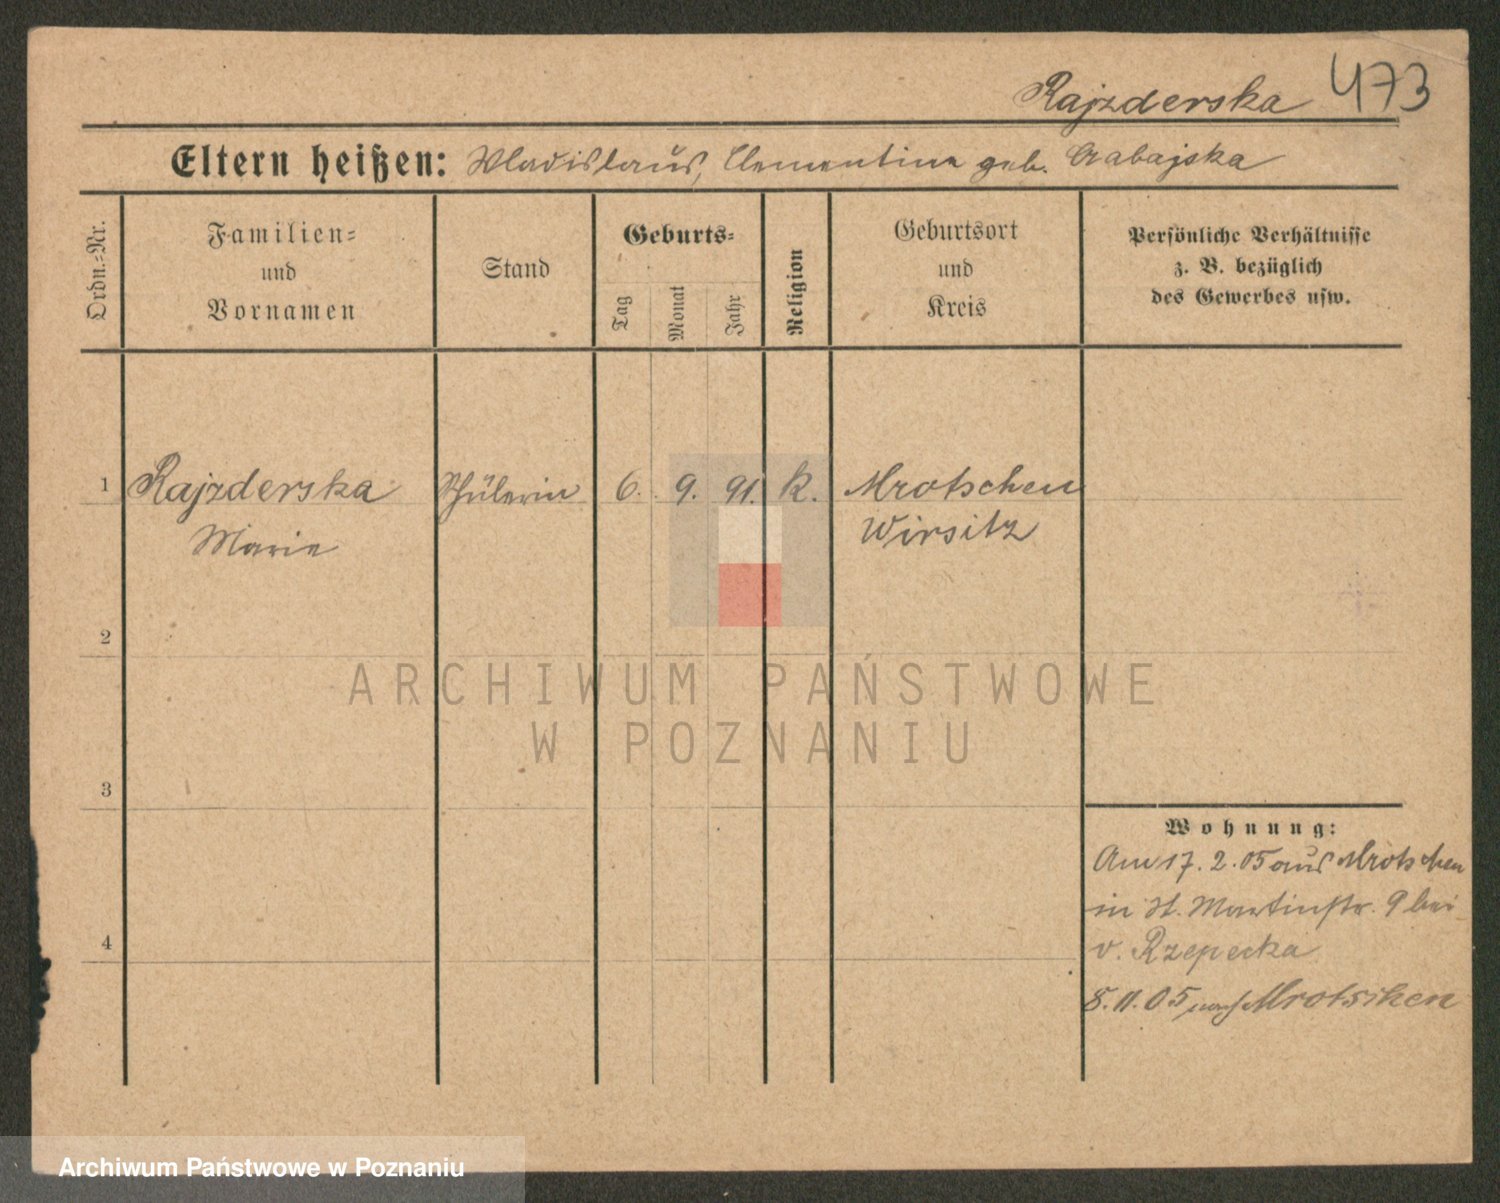 Rajzderska 473
Eltern heißen: Wladislaus, Clementine geb. Grabajska
Ordn.-Nr.
Familien-
und
Vornamen
Stand
Geburts-
Tag
Monat
Jahr
Religion
Geburtsort
und
Kreis
Persönliche Verhältnisse
z. B. bezüglich
des Gewerbes usw.
1 Rajzderska Schülerin 6. 9. 91. k. Mrotschen
Marie Wirsitz
2
ARCHIWUM PAŃSTWOWE
W POZNANIU
3
Wohnung:
Am 17. 2. 05 aus Mrotschen
in St. Martinstr. 9 bei
v. Rzepecka
4
8. 11. 05 nach Mrotschen
Archiwum Państwowe w Poznaniu